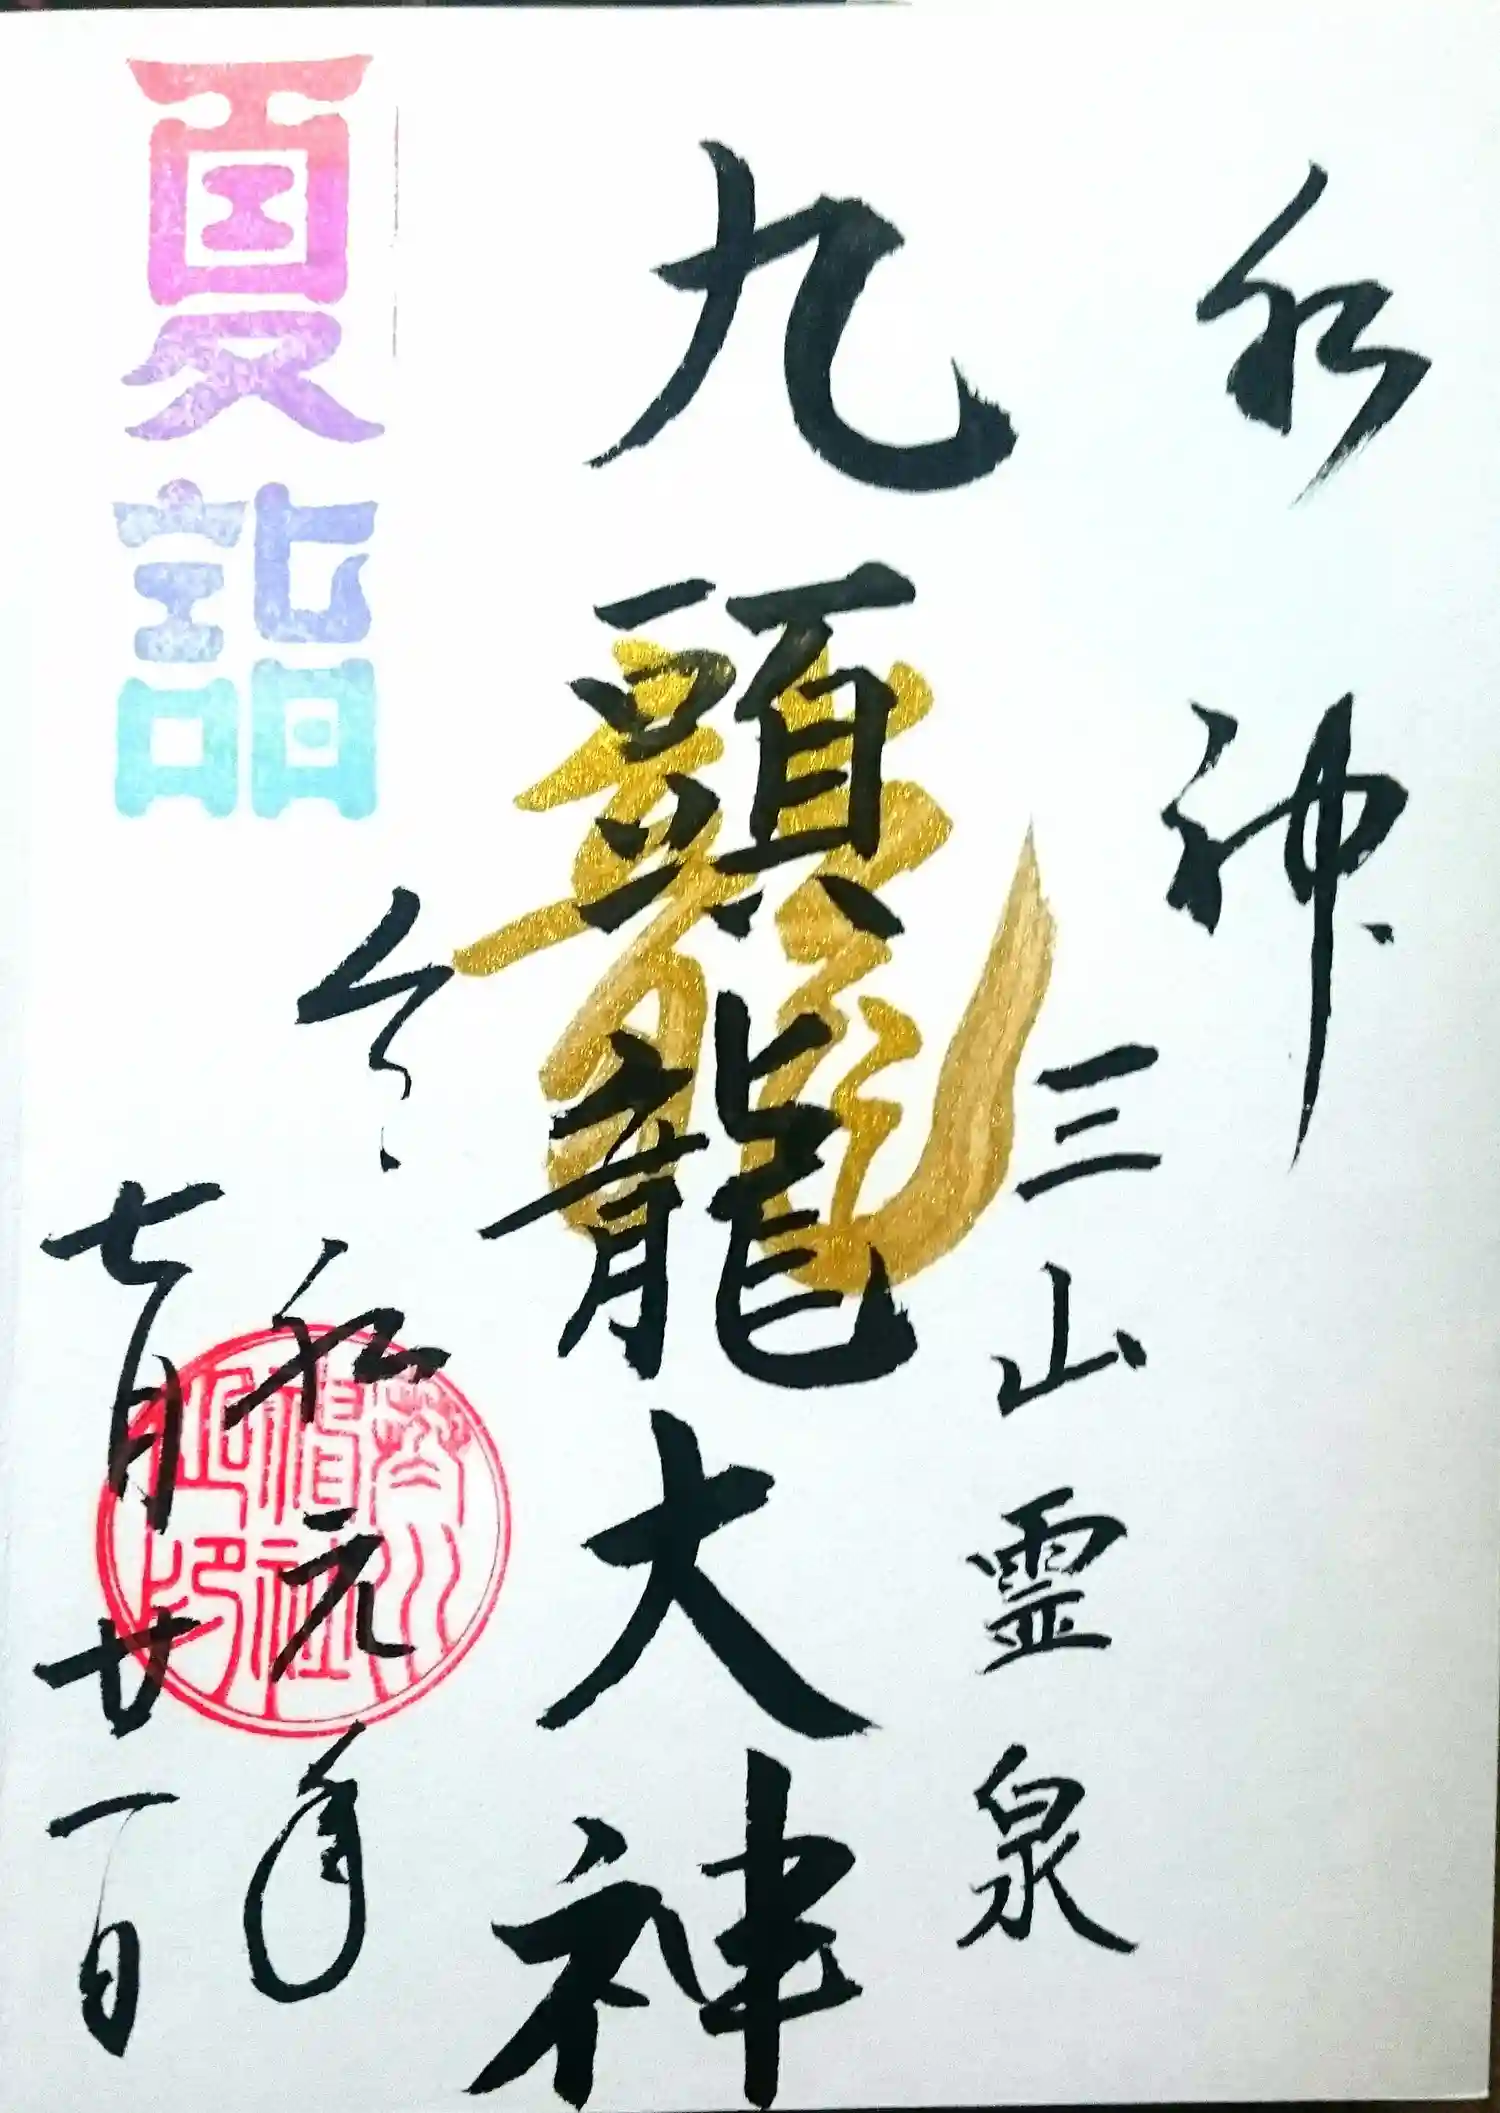 水神
三山霊泉
九頭龍大神
龍
令和元年
七月廿一日
夏詣